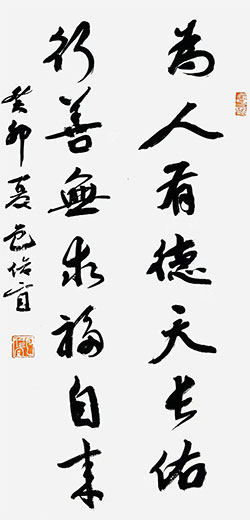 為人有德天長佑
行善無求福自來
癸卯夏